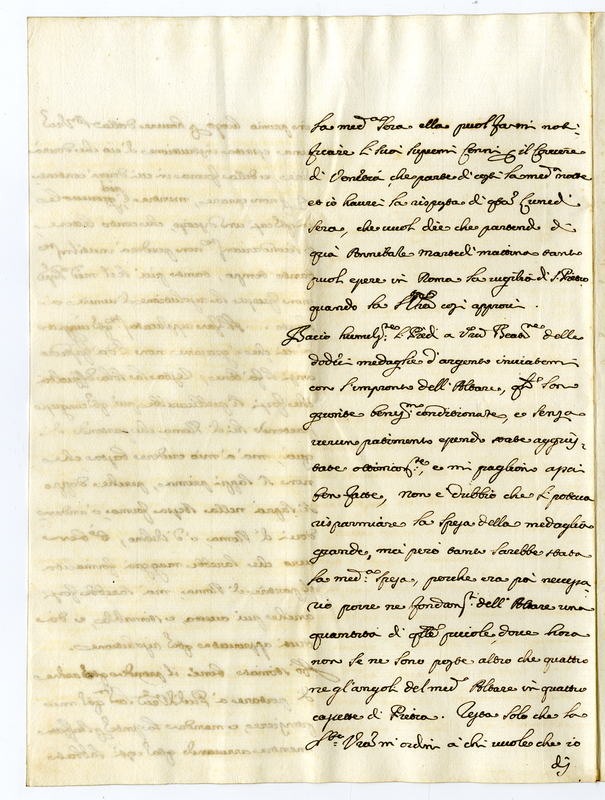 la med.a sera ella puol farmi noti-
ficare li suoi supremi Cenni e il Corriere
di Venetia, che parte di costì la med.a notte
et io haurei la risposta di qsta Lunedì
sera, che vuol dire che partendo di
quà Annibale martedì mattina tanto
puol essere in Roma la vigilia di S. Pietro
quando la così approvi.
Bacio humilss.te li Piedi a Vra Beatne delle
dodici medaglie d'argento inviatemi
con l'impronto dell'Altare, qste son
gionte beniss.mo condizionate, e senza
verun patimento essendo state aggius-
tate ottimam.te, e mi pagliono assai
ben fatte, non è dubbio che si poteva
risparmiare la spesa della medaglia
grande, mà però tanto sarebbe stata
la med.a spesa, perche era poi necessa-
rio porre ne fondam.ti dell'Altare una
quantità di qste piccole, dove hora
non se ne sono poste altro che quattro
ne gl'angoli del med.o Altare in quattro
cassette di Pietra. Resta solo che la
Vra mi ordini à chi vuole che io
di